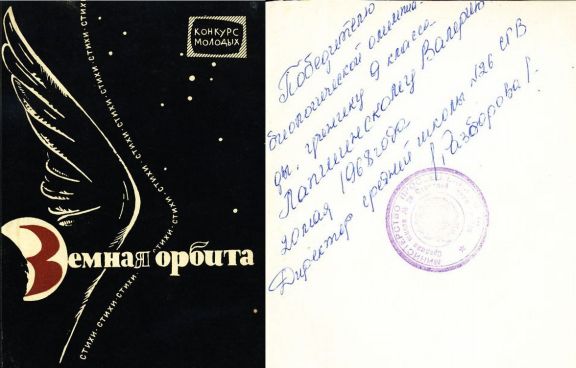 КОНКУРС
МОЛОДЫХ
СТИХИ·СТИХИ·СТИХИ·СТИХИ·СТИХИ·СТИХИ·СТИХИ·СТИХИ·СТИХИ
Земная орбита
Победителю
биологической олимпиа-
ды. ученику 9 класса
Лапшинскому Валерию
20 мая 1968 года
Директор средней школы №26 СГВ
/Разборова/.
МИНИСТЕРСТВО